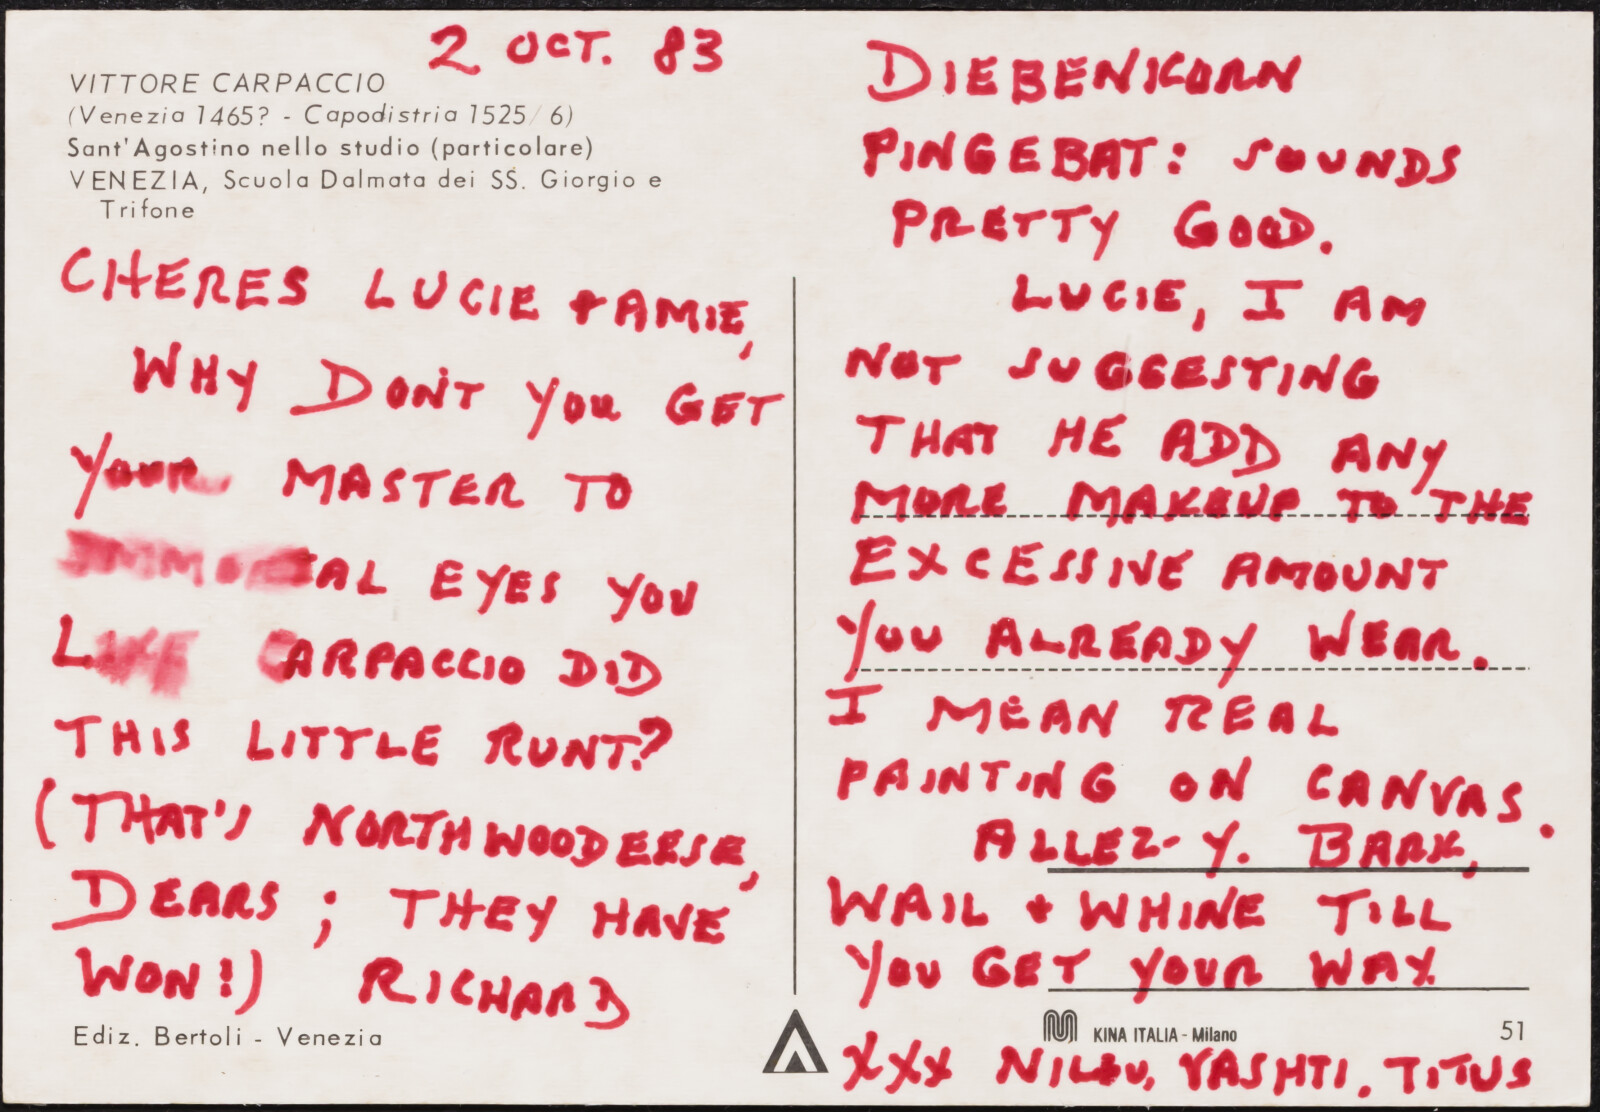 2 OCT. 83
VITTORE CARPACCIO
(Venezia 1465? - Capodistria 1525/6)
Sant'Agostino nello studio (particolare)
VENEZIA, Scuola Dalmata dei SS. Giorgio e
Trifone
CHERES LUCIE + AMIE,
WHY DON'T YOU GET
YOUR MASTER TO
IMMORTAL EYES YOU
LIKE CARPACCIO DID
THIS LITTLE RUNT?
(THAT'S NORTHWOODEESE,
DEARS; THEY HAVE
WON!) RICHARD
Ediz. Bertoli - Venezia
DIEBENKORN
PINGEBAT: SOUNDS
PRETTY GOOD.
LUCIE, I AM
NOT SUGGESTING
THAT HE ADD ANY
MORE MAKEUP TO THE
EXCESSIVE AMOUNT
YOU ALREADY WEAR.
I MEAN REAL
PAINTING ON CANVAS.
ALLEZ-Y. BARK,
WAIL + WHINE TILL
YOU GET YOUR WAY.
KINA ITALIA - Milano
51
XXX NILOU, VASHTI, TITUS